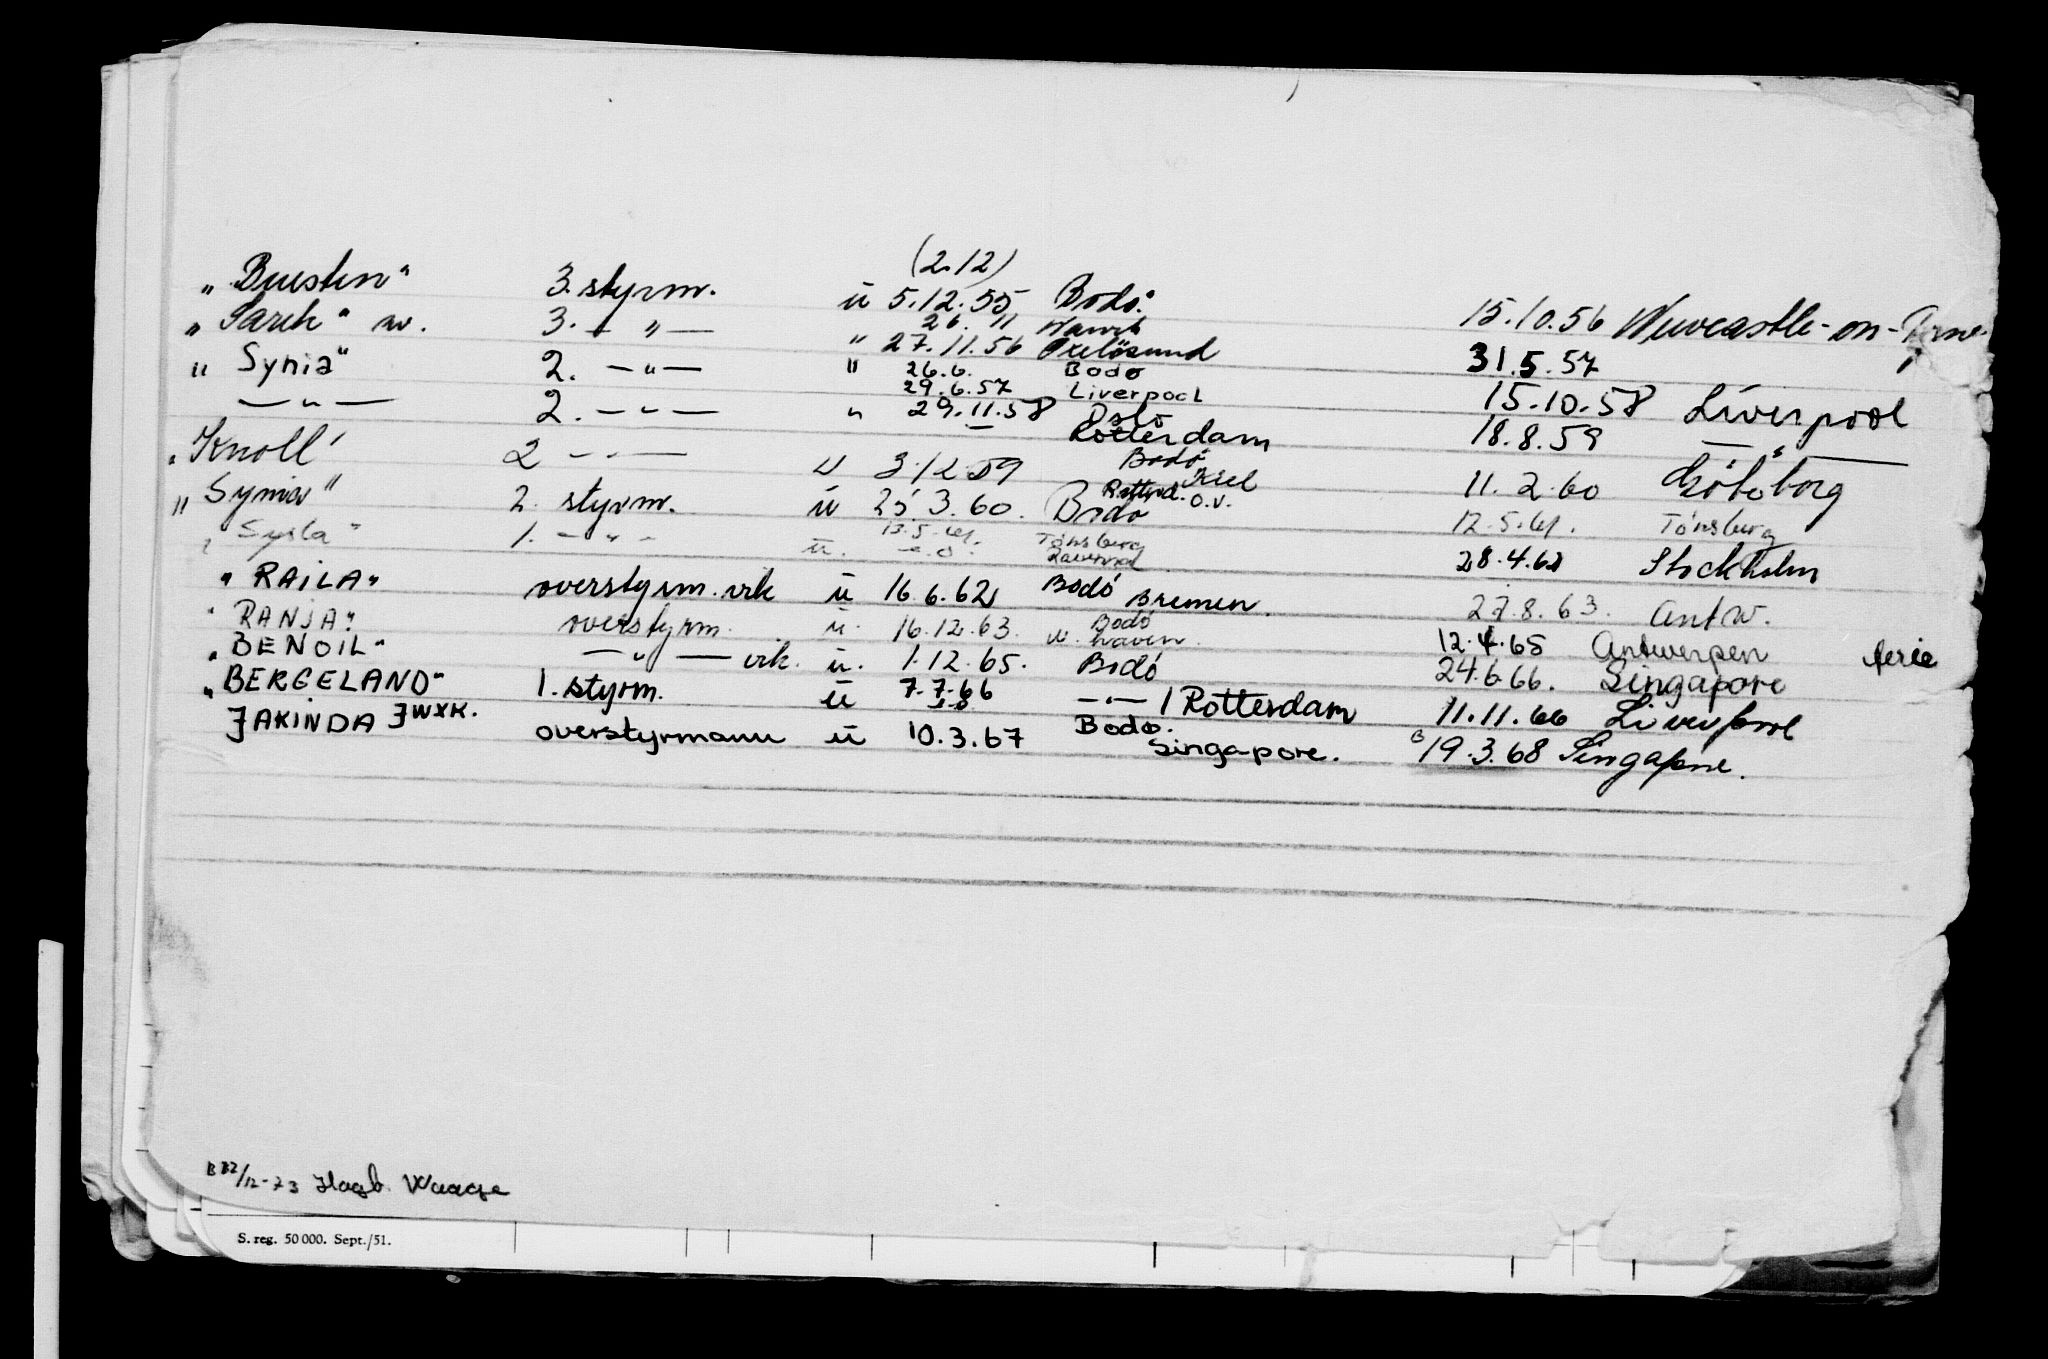 (2.12)
„ Buesten" 3. styrm. ü 5.12.55 Bodö. 15.10.56 Newcastle-on-Tyne
„ Sarek" 3. — " — 26. 11 Narvik
" 27.11.56 Oxelösund 31.5.57
" Synia" 2. — " — " 26.6. Bodø
29.6.57 Liverpool 15.10.58 Liverpool
— " — 2. — " — " 29.11.58 Oslo
Rotterdam 18.8.59 — " —
„ Knoll" 2 — " — ü 3.12.59 Bodö
Kiel 11.2.60 Göteborg
" Synia" 2. styrm. ü 25.3.60. Bodø Rotterd. o.v.
" Sysla" 1. — " — 13.5.61. Tønsberg 12.5.61. Tönsberg
ü. 28.4.62 Stockholm
" RAILA" overstyrm. vik ü 16.6.62 Bodö Bremen.
" RANJA" overstyrm. ü. 16.12.63. Bodö 27.8.63. Antw.
W. haven.
„ BENOIL" — " — vik. ü. 1.12.65. Bodö 12.4.65 Antwerpen ferie
„ BERGELAND" 1. styrm. ü 7.7.66 — " — / Rotterdam 24.6.66. Singapore
11.11.66 Liverpool
JAKINDA JWXK. overstyrmann ü 10.3.67 Bodø.
Singapore. 19.3.68 Singapore.
/12-73 Hagb. Waage
S. reg. 50 000. Sept./51.